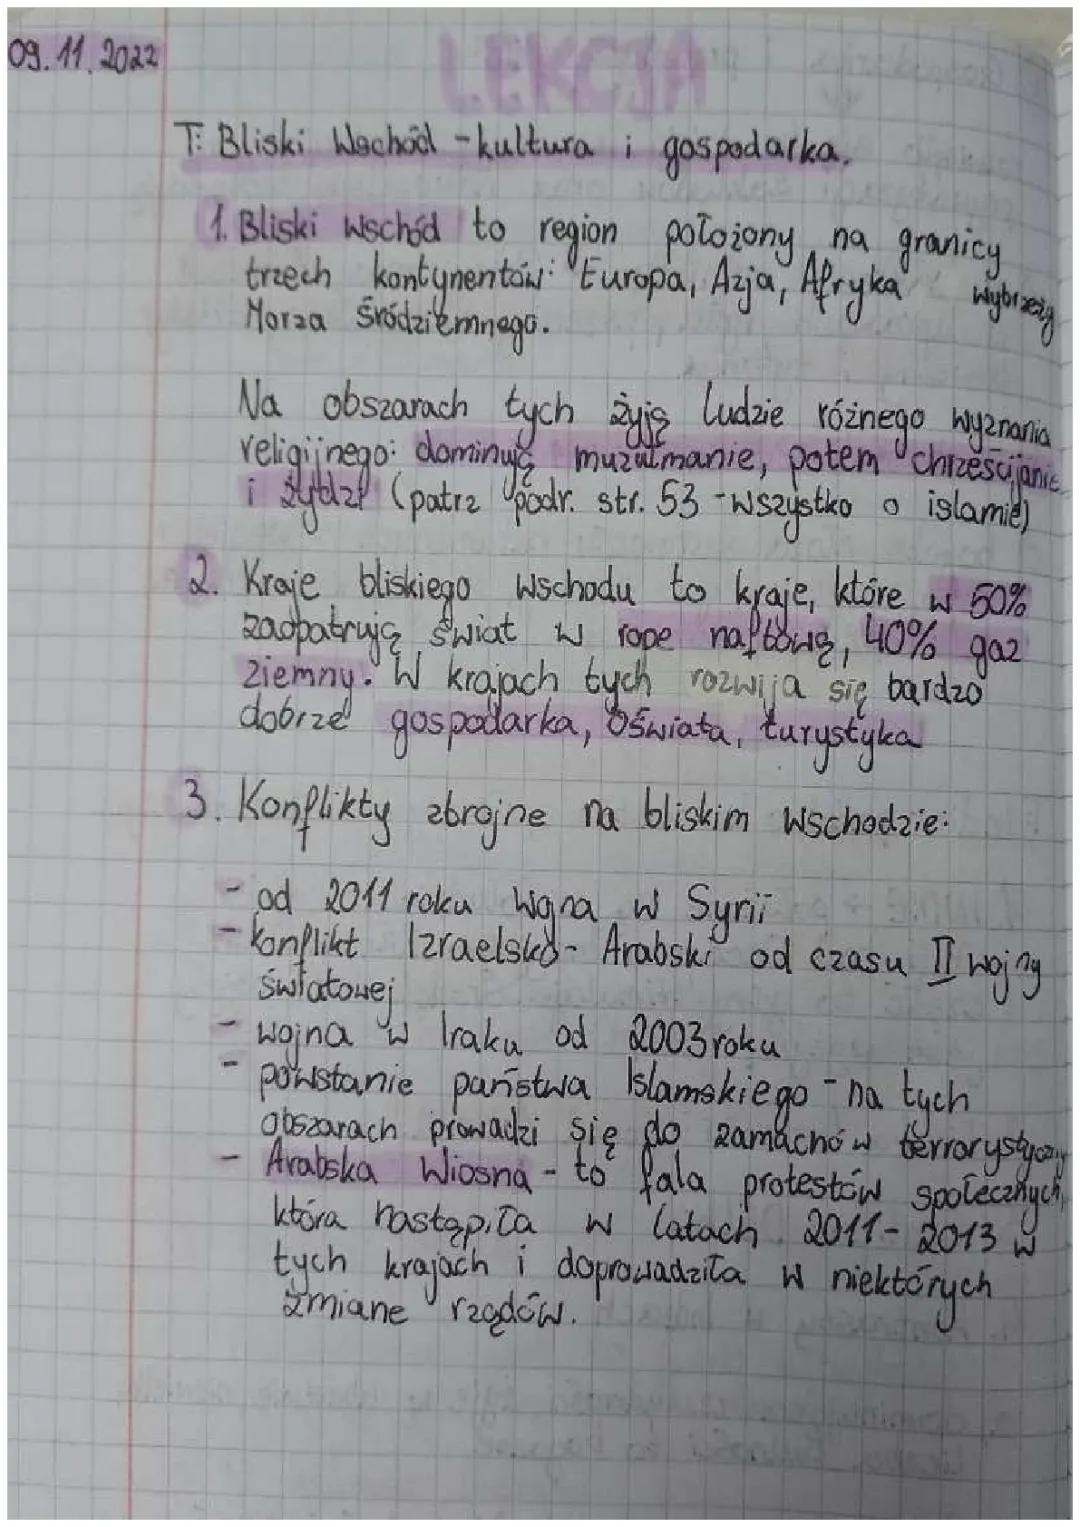 09.11.2022
LEKCJA
T: Bliski Wschód - kultura i gospodarka.
1. Bliski Wschód to region położony na granicy
trzech kontynentów: Europa, Azja, Afryka wybrzeży
Morza Śródziemnego.
Na obszarach tych żyją ludzie różnego wyznania
religijnego: dominują muzułmanie, potem chrześcijanie
i żydzi (patrz podr. str. 53 - wszystko o islamie)
2. Kraje bliskiego wschodu to kraje, które w 50%
zaopatrują świat w rope naftową, 40% gaz
ziemny. W krajach tych rozwija się bardzo
dobrze gospodarka, oświata, turystyka
3. Konflikty zbrojne na bliskim wschodzie:
- od 2011 roku wojna w Syrii
- konflikt Izraelsko - Arabski od czasu II wojny
światowej
- wojna w Iraku od 2003 roku
- powstanie państwa Islamskiego - na tych
obszarach prowadzi się do zamachów
- Arabska Wiosna - to fala protestów społecznych,
która nastąpiła w latach 2011 - 2013 w
tych krajach i doprowadziła w niektórych
zmiane rządów.